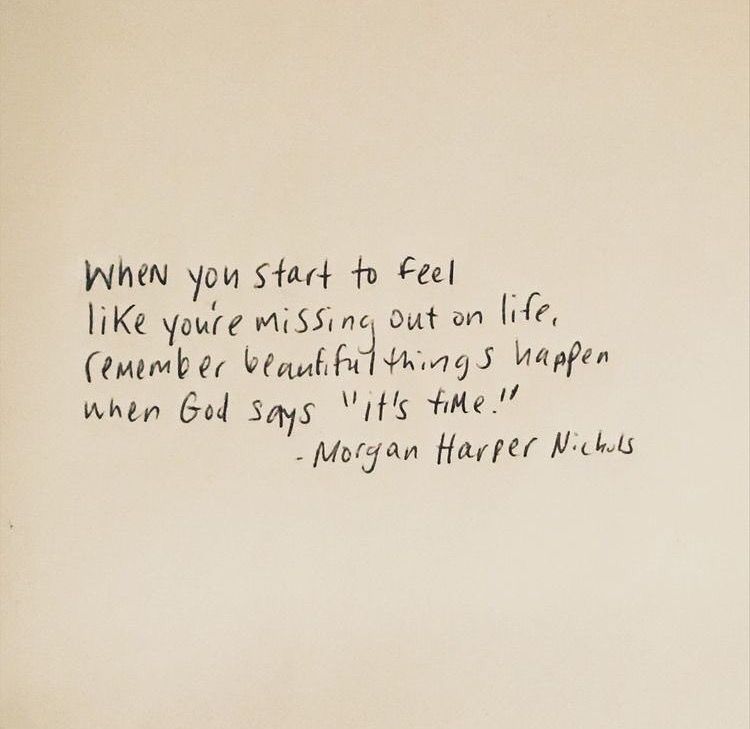 When you start to feel
like you're missing out on life,
remember beautiful things happen
when God says "it's time."
- Morgan Harper Nichols